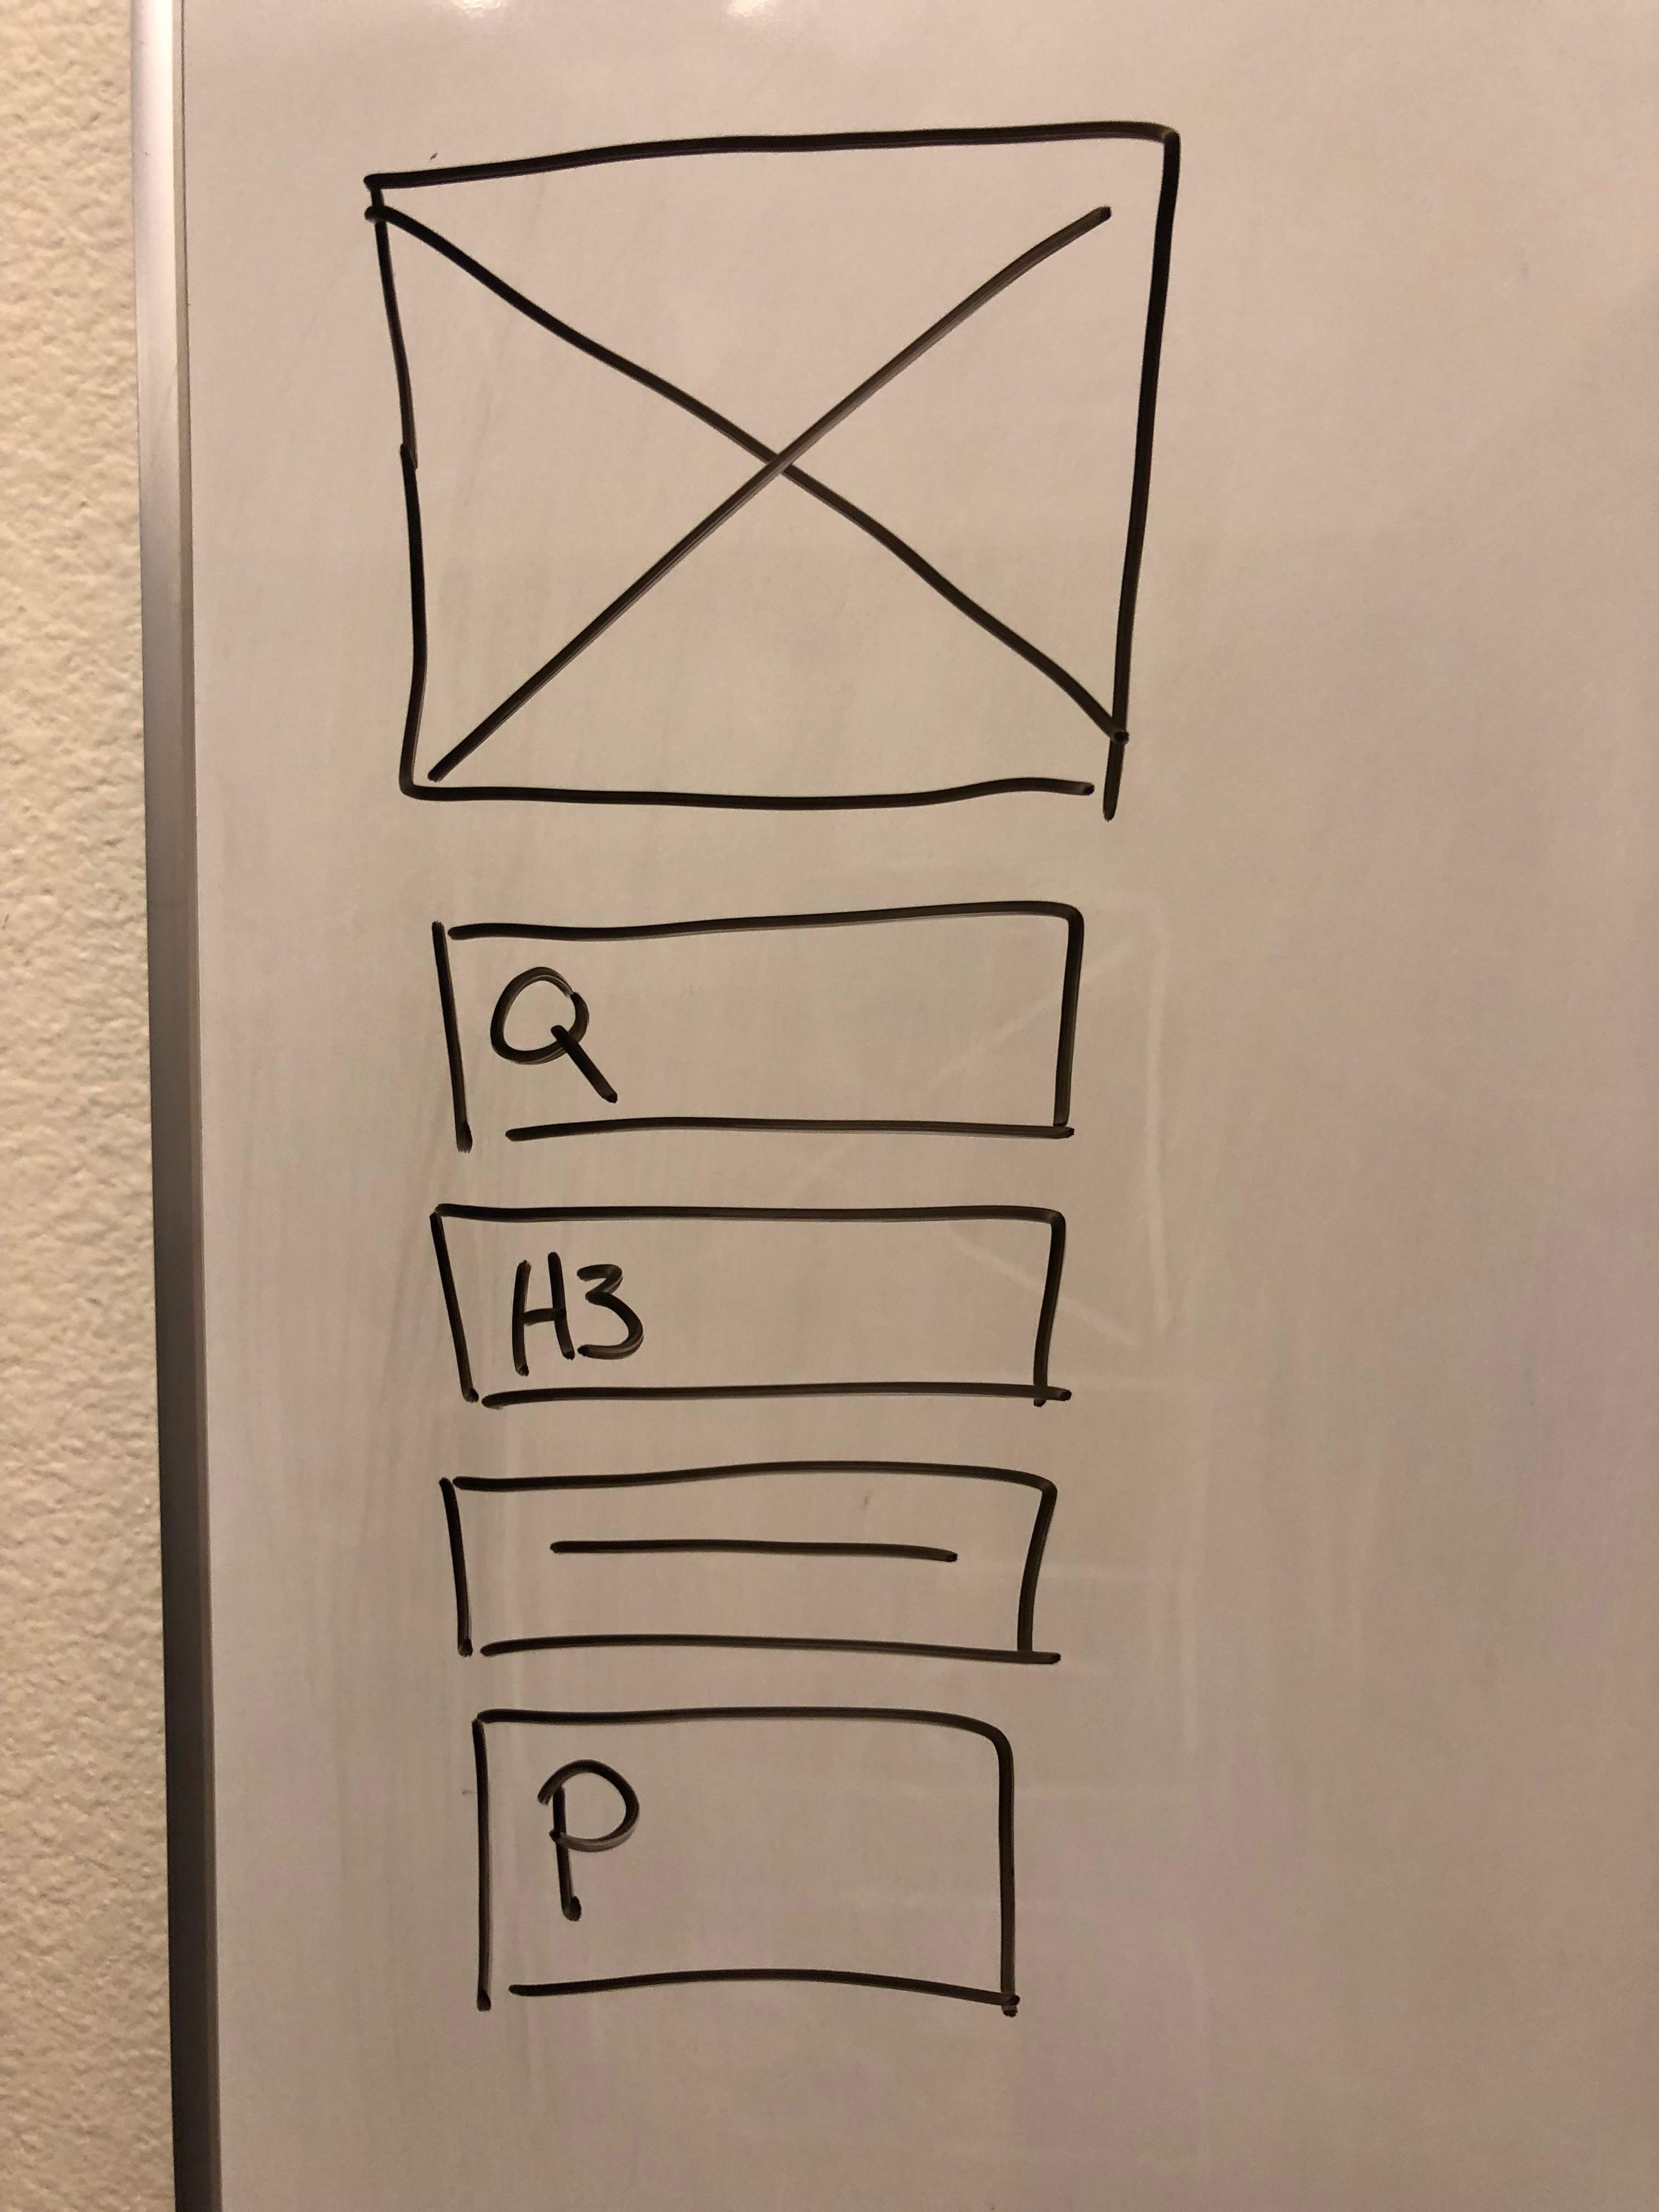 Q
H3
P